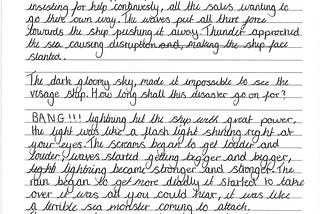 insisting for help continuesly, all the sailes wanting to
go their own way. The waves put all there force
towards the ship pushing it away. Thunder approched
the sea causing disruption and, making the ship face
slanted.
The dark gloomy sky, made it impossible to see the
visage ship. How long shall this disaster go on for?
BANG!!! lightning hit the ship with great power,
the light was like a flash light shining right at
your eyes. The screams began to get louder and
louder, waves started getting bigger and bigger,
light lightning became stronger and stronger. The
rain began to get more deadly it started to take
over it was all you could hear, it was like
a terrible sea monster coming to attack.